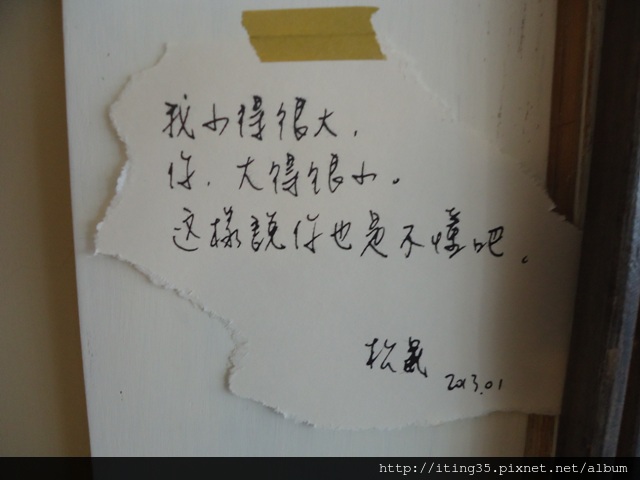 我小得很大，
你，大得很小。
这樣說你也是不懂吧。
松鼠
2013.01
http://iting35.pixnet.net/album